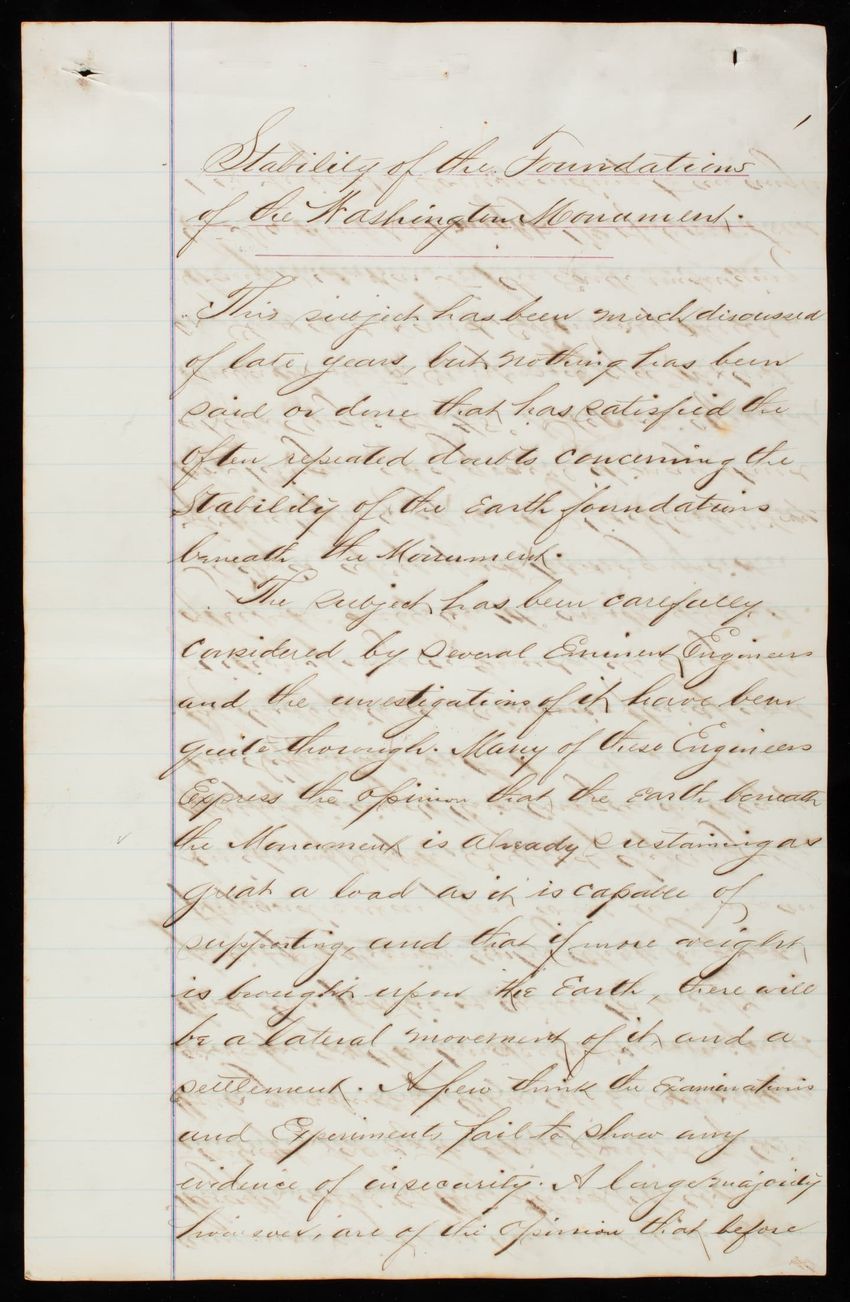 1
Stability of the Foundations
of the Washington Monument.
This subject has been much discussed
of late years, but nothing has been
said or done that has satisfied the
often repeated doubts concerning the
Stability of the Earth foundations
beneath the Monument.
The subject has been carefully
Considered by several Eminent Engineers
and the investigations of it have been
quite thorough. Many of these Engineers
Express the opinion that the Earth beneath
the Monument is already sustaining as
great a load as it is capable of
supporting, and that if more weight
is brought upon the Earth, there will
be a lateral movement of it and a
settlement. A few think the Examinations
and Experiments fail to show any
evidence of insecurity. A large majority
however, are of the opinion that before